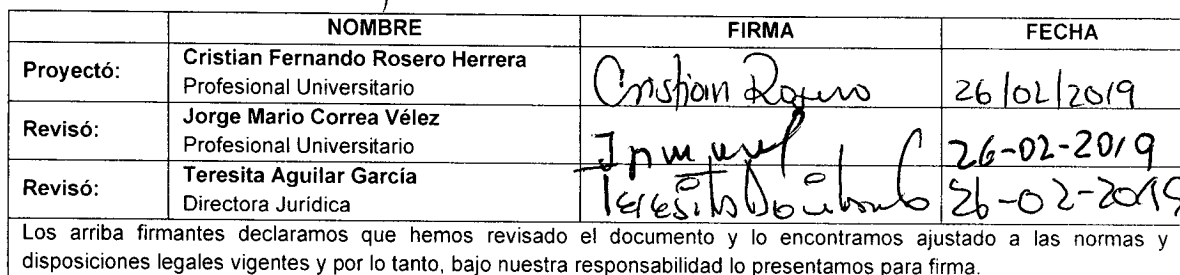 NOMBRE FIRMA FECHA
Proyectó: Cristian Fernando Rosero Herrera
Profesional Universitario Cristian Rosero 26/02/2019
Revisó: Jorge Mario Correa Vélez
Profesional Universitario 26-02-2019
Revisó: Teresita Aguilar García
Directora Jurídica Teresita 26-02-2019
Los arriba firmantes declaramos que hemos revisado el documento y lo encontramos ajustado a las normas y
disposiciones legales vigentes y por lo tanto, bajo nuestra responsabilidad lo presentamos para firma.